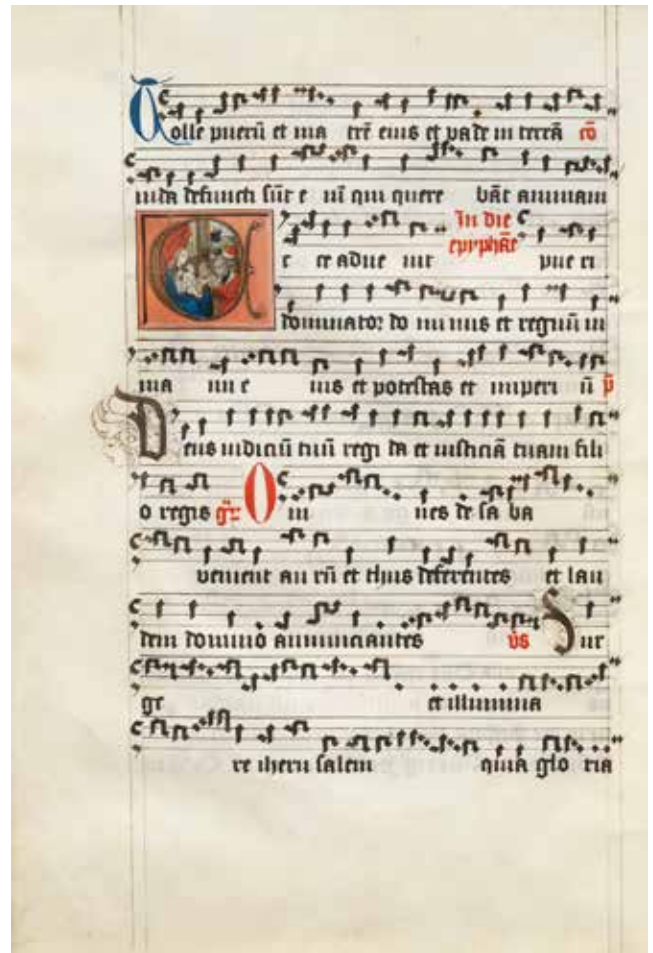 Tolle puerū et ma trē eius et vade in terrā cō
inda defuncti sūt e nī qui quere bāt animam
In die
E c ce adue nit epyphāie pue ri
dominator do minus et regnū in
ma nu e ius et potestas et imperi ū p̄
Deus iudiciū tuū regi da et iusticiā tuam fili
o regis gr̄ Om nes de sa ba
venient au rū et thus deferentes et lau
dem domino annunciantes v̄s Sur
ge et illumina
re iherusalem quia glo ria